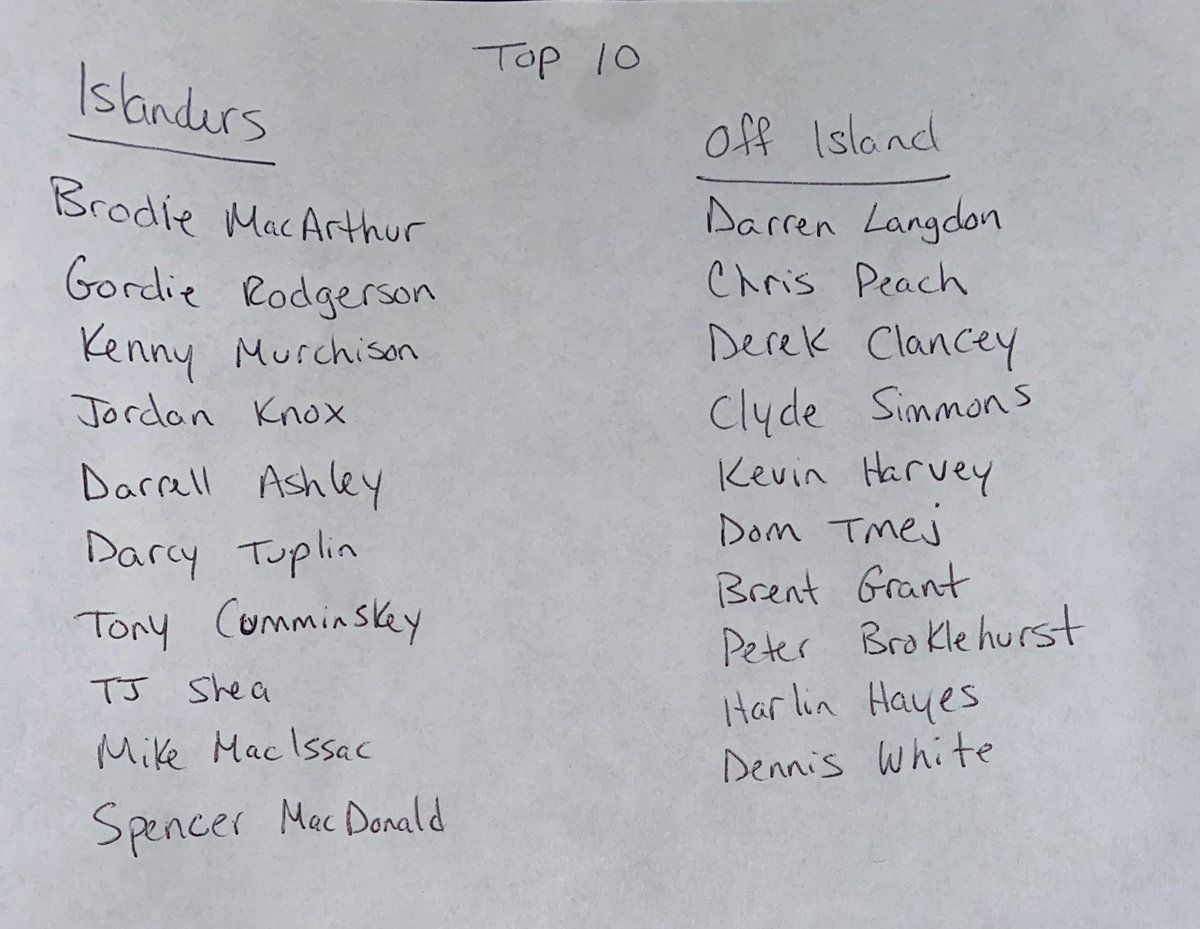 Top 10
Islanders
Brodie MacArthur
Gordie Rodgerson
Kenny Murchison
Jordan Knox
Darrell Ashley
Darcy Tuplin
Tony Comminskey
TJ Shea
Mike MacIssac
Spencer MacDonald
Off Island
Darren Langdon
Chris Peach
Derek Clancey
Clyde Simmons
Kevin Harvey
Dom Tmej
Brent Grant
Peter Broklehurst
Harlin Hayes
Dennis White